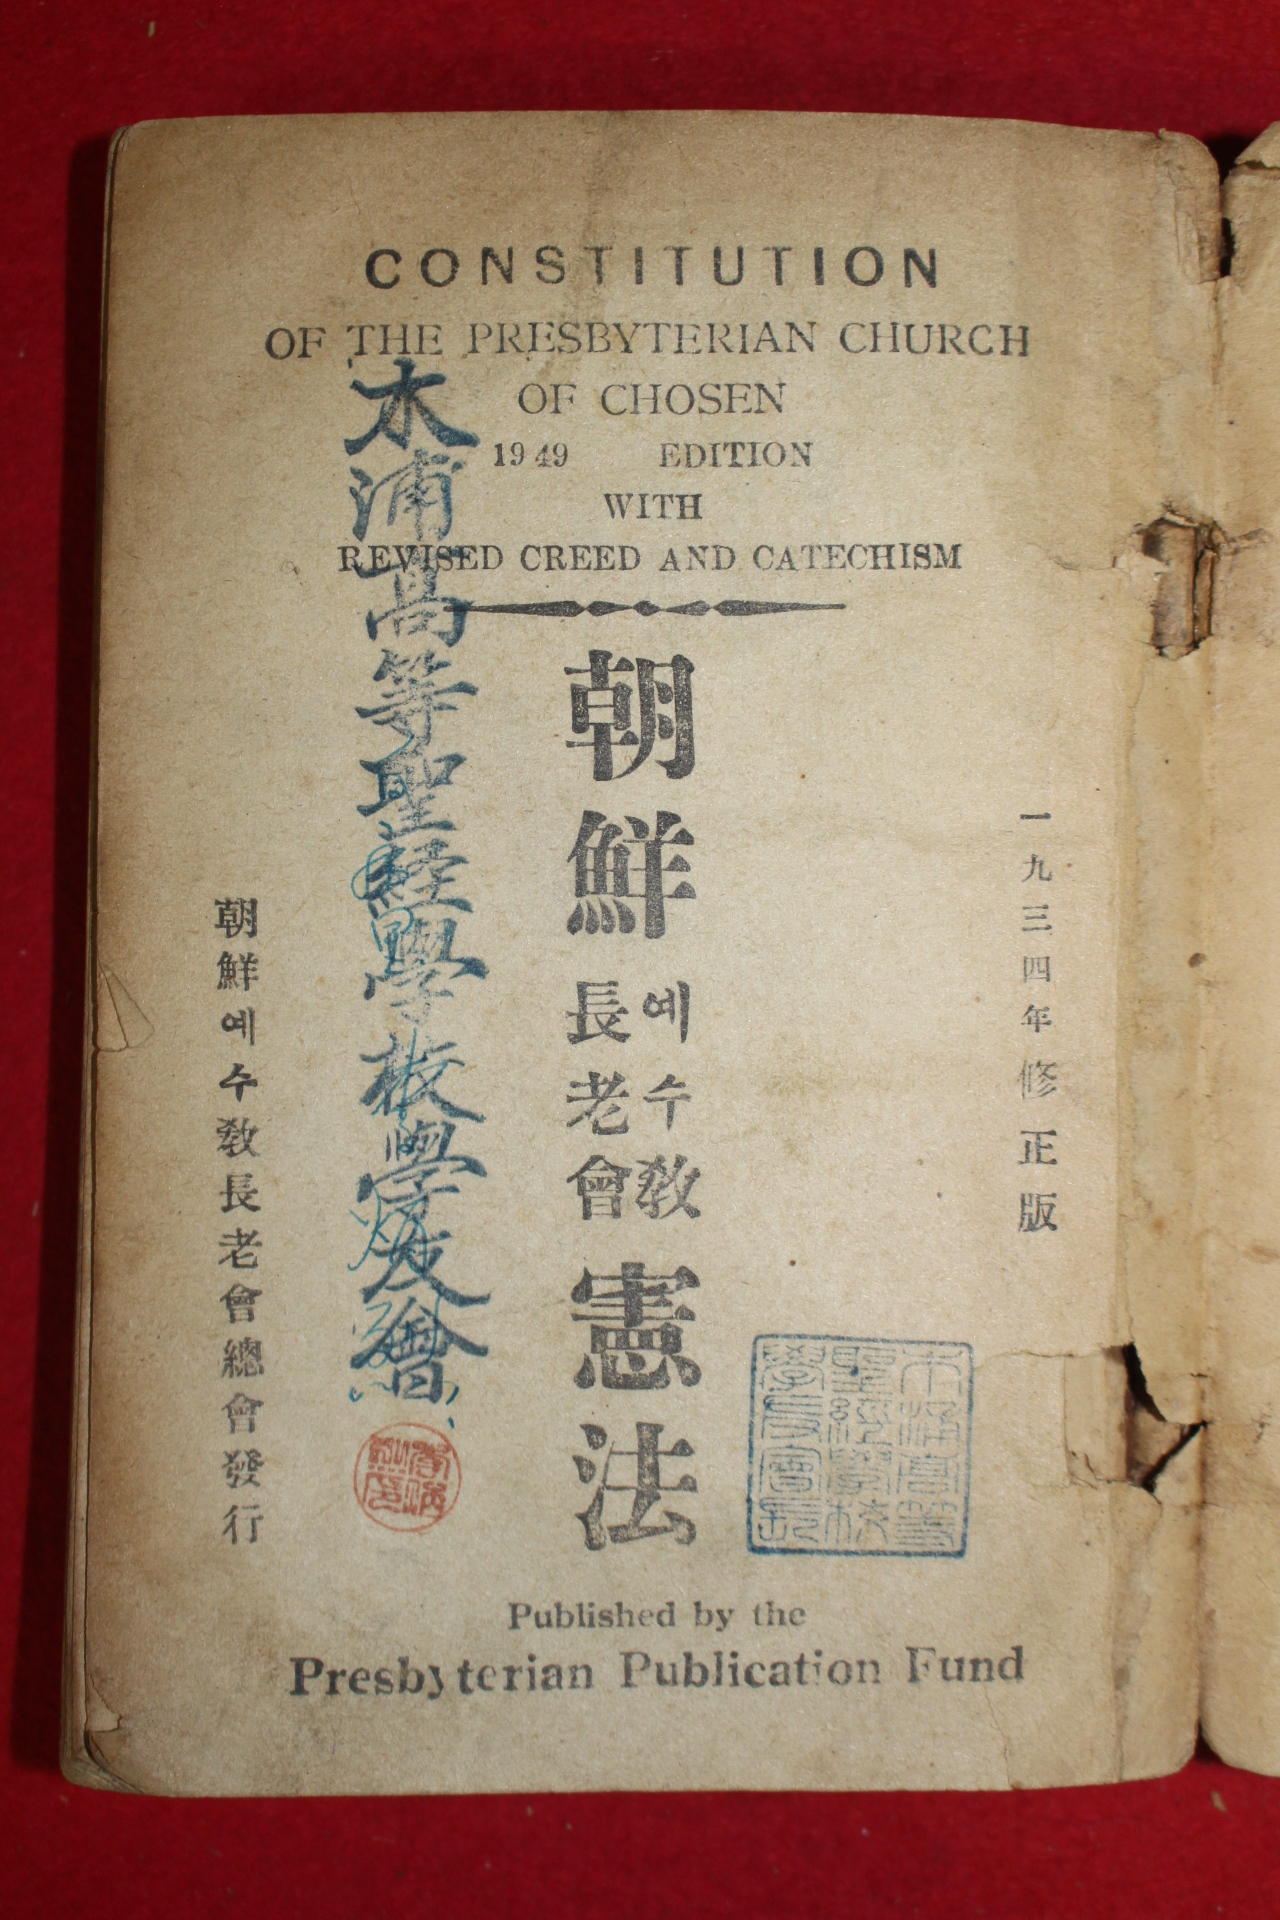 CONSTITUTION
OF THE PRESBYTERIAN CHURCH
OF CHOSEN
1949 EDITION
WITH
REVISED CREED AND CATECHISM
一九三四年修正版
朝鮮예수敎長老會憲法
木浦高等聖經學校學友會
朝鮮예수敎長老會總會發行
木浦高等
聖經學校
學友會長
Published by the
Presbyterian Publication Fund